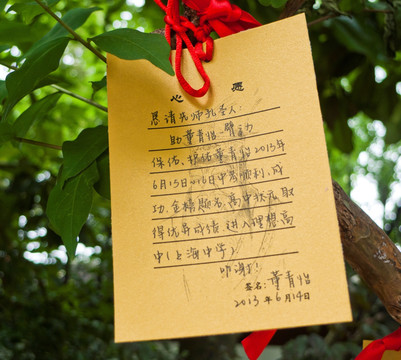 心愿
恳请先师孔圣人:
助董青怡一臂之力
保佑、护佑董青怡2013年
6月15日~16日中考顺利,成
功.金榜题名,高中状元.取
得优异成绩.进入理想高
中(上海中学)
叩谢!
签名:董青怡
2013年6月14日